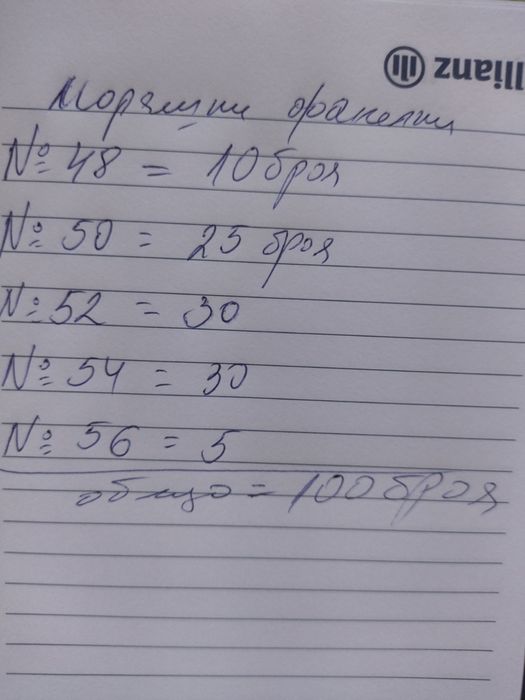 llianz
Моряшки фланелки
№ 48 = 10 броя
№ 50 = 25 броя
№ 52 = 30
№ 54 = 30
№ 56 = 5
общо = 100 броя